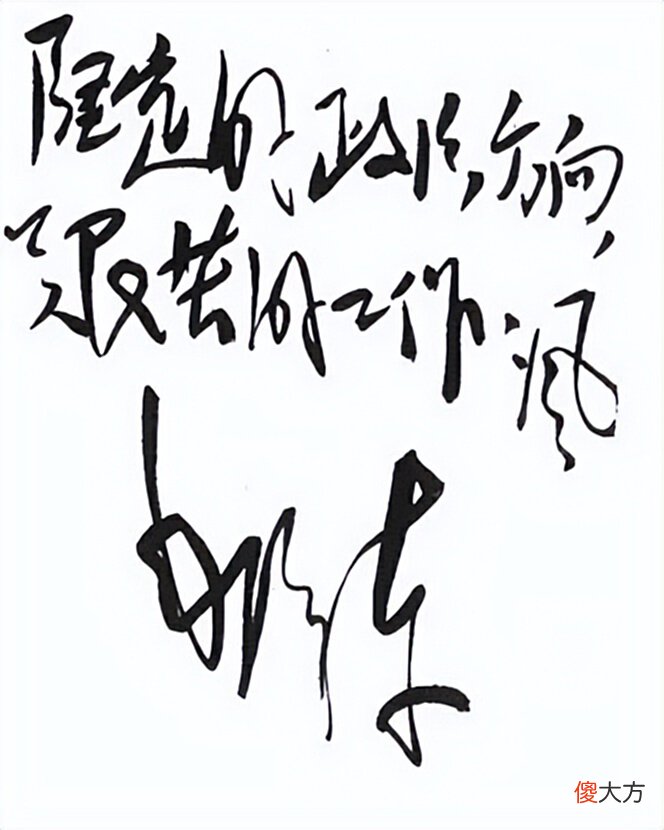 坚定的政治方向，
艰苦的工作作风
毛泽东
傻大方